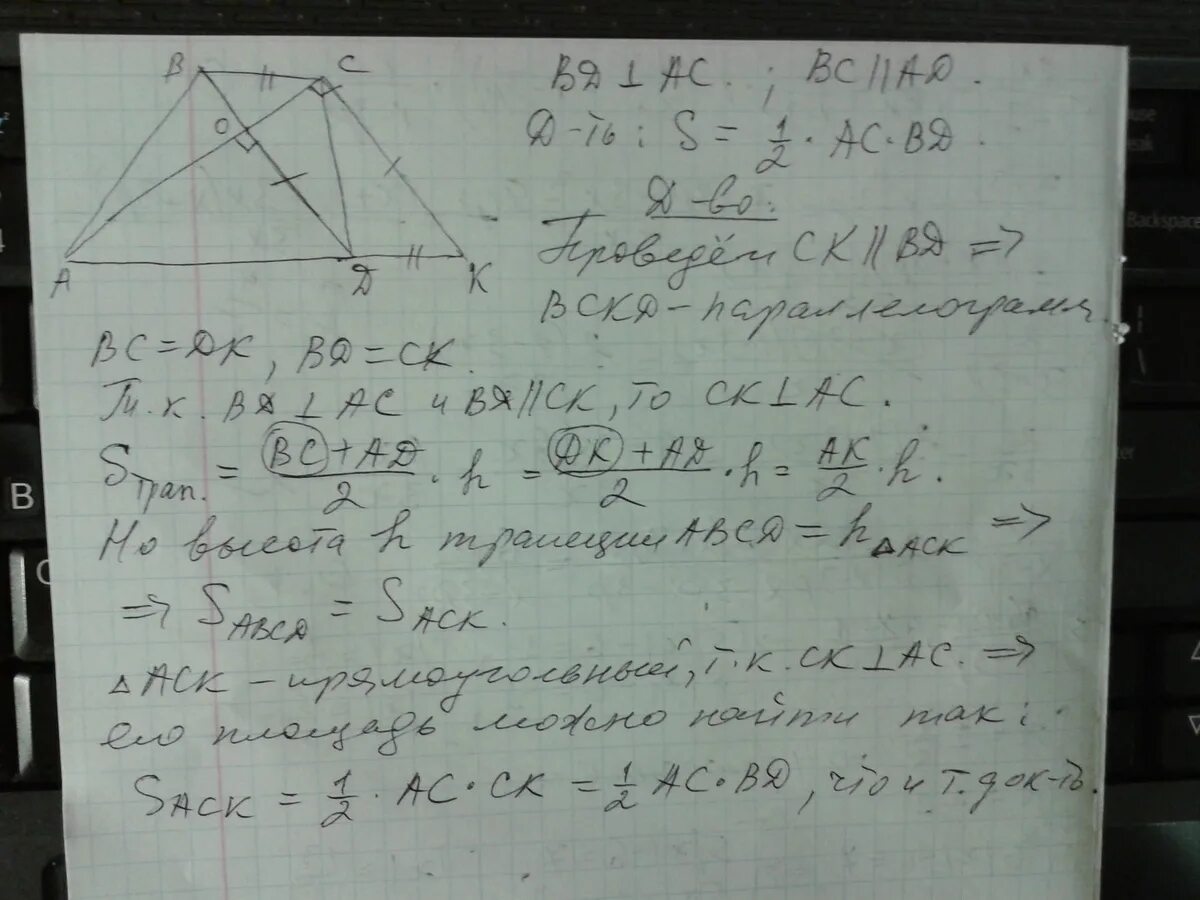 B C O A D K
BD ⊥ AC. ; BC || AD.
Д-ть: S = 1/2 · AC · BD.
Д-во:
Проведём CK || BD =>
BCKD – параллелограмм.
BC = DK, BD = CK.
Т.к. BD ⊥ AC и BD || CK, то CK ⊥ AC.
Sтрап. = (BC + AD)/2 · h = (DK + AD)/2 · h = AK/2 · h.
Но высота h трапеции ABCD = h△ACK =>
=> S ABCD = S ACK.
△ACK – прямоугольный, т.к. CK ⊥ AC. =>
его площадь можно найти так:
S ACK = 1/2 · AC · CK = 1/2 AC · BD, что и т. док-ть.
Backspace
B